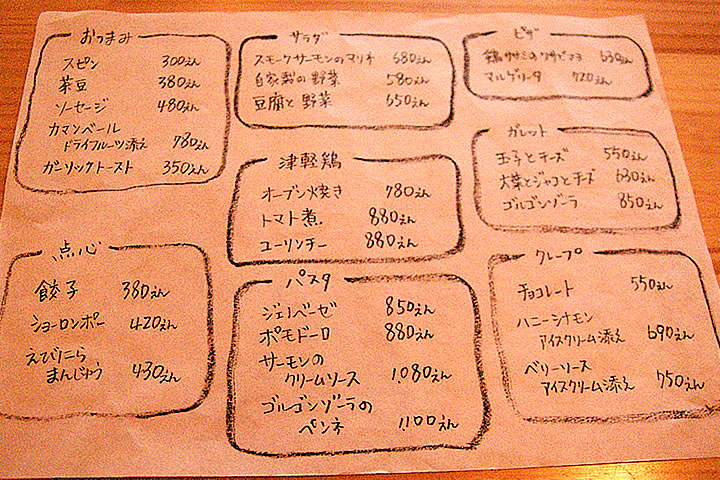 おつまみ
スピン 300えん
茶豆 380えん
ソーセージ 480えん
カマンベール
ドライフルーツ添え 780えん
ガーリックトースト 350えん
サラダ
スモークサーモンのマリネ 680えん
自家製の野菜 580えん
豆腐と野菜 650えん
ピザ
鶏ササミのワサビマヨ 630えん
マルゲリータ 720えん
ガレット
玉子とチーズ 550えん
大葉とジャコとチーズ 630えん
ゴルゴンゾーラ 850えん
津軽鶏
オーブン焼き 780えん
トマト煮 880えん
ユーリンチー 880えん
点心
餃子 380えん
ショーロンポー 420えん
えびにら
まんじゅう 430えん
パスタ
ジェノベーゼ 850えん
ポモドーロ 880えん
サーモンの
クリームソース 1,080えん
ゴルゴンゾーラの
ペンネ 1,100えん
クレープ
チョコレート 550えん
ハニーシナモン
アイスクリーム添え 690えん
ベリーソース
アイスクリーム添え 750えん